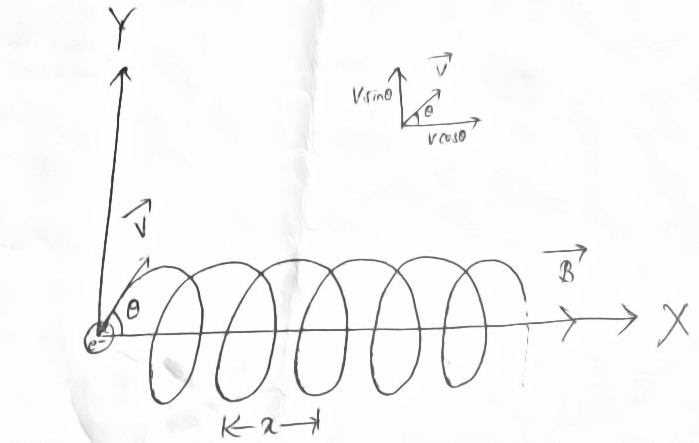 Y
V
Vsinθ
θ
Vcosθ
V
θ
B
e-
X
x